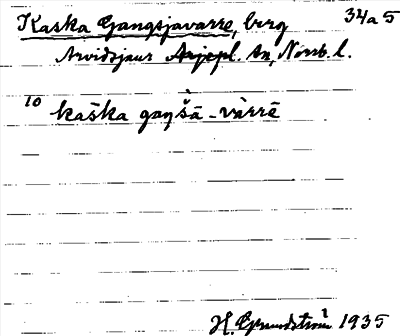 Kaska Gangsjavarre, berg 34a5
Arvidsjaur Arjepl. sn, Norrb. l.
10 kaška gaŋšā - vàrrē
H. Grundström 1935